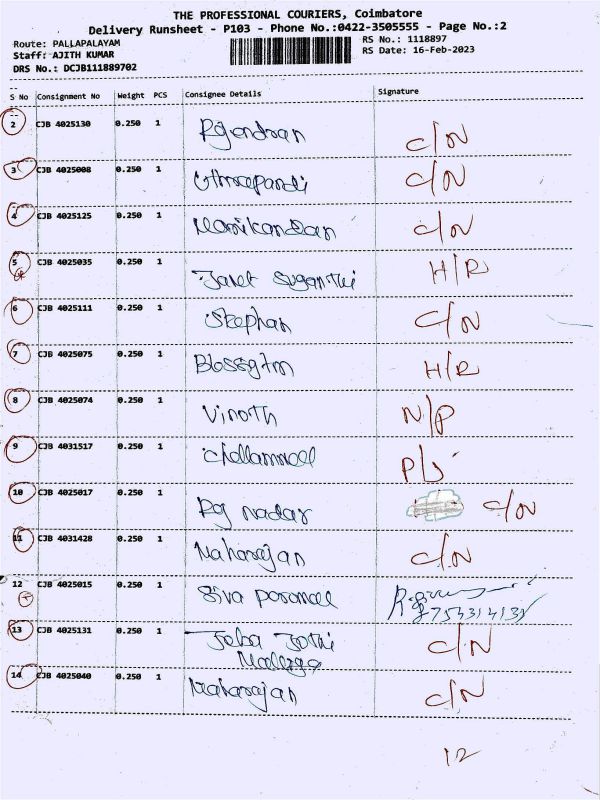 THE PROFESSIONAL COURIERS, Coimbatore
Delivery Runsheet - P103 - Phone No.:0422-3505555 - Page No.:2
Route: PALLAPALAYAM RS No.: 1118897
Staff: AJITH KUMAR RS Date: 16-Feb-2023
DRS No.: DCJB111889702
S No Consignment No Weight PCS Consignee Details Signature
2 CJB 4025130 0.250 1 C/N
3 CJB 4025008 0.250 1 C/N
4 CJB 4025125 0.250 1 Manikandan C/N
5 CJB 4025035 0.250 1 Janet Suganthi H/R
6 CJB 4025111 0.250 1 Stephan C/N
7 CJB 4025075 0.250 1 H/R
8 CJB 4025074 0.250 1 Vinoth N/P
9 CJB 4031517 0.250 1 Chellammal
10 CJB 4025017 0.250 1 nadar C/N
11 CJB 4031428 0.250 1 Maharajan C/N
12 CJB 4025015 0.250 1 Siva
13 CJB 4025131 0.250 1 Jeba C/N
14 CJB 4025040 0.250 1 Maharajan C/N
12